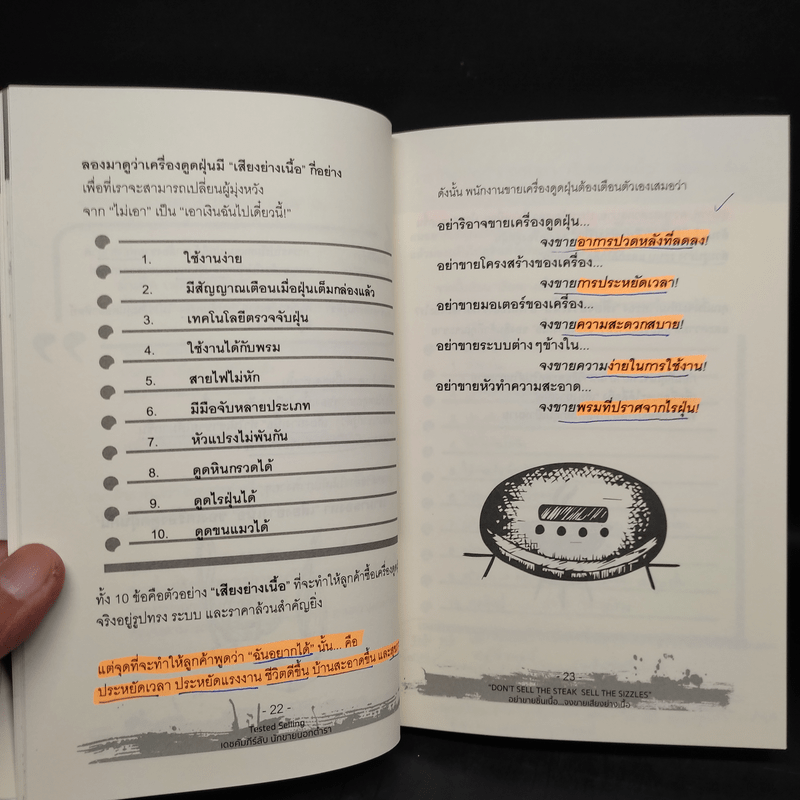 ลองมาดูว่าเครื่องดูดฝุ่นมี “เสียงย่างเนื้อ” กี่อย่าง
เพื่อที่เราจะสามารถเปลี่ยนผู้มุ่งหวัง
จาก “ไม่เอา” เป็น “เอาเงินฉันไปเดี๋ยวนี้!”
1. ใช้งานง่าย
2. มีสัญญาณเตือนเมื่อฝุ่นเต็มกล่องแล้ว
3. เทคโนโลยีตรวจจับฝุ่น
4. ใช้งานได้กับพรม
5. สายไฟไม่หัก
6. มีมือจับหลายประเภท
7. หัวแปรงไม่พันกัน
8. ดูดหินกรวดได้
9. ดูดไรฝุ่นได้
10. ดูดขนแมวได้
ทั้ง 10 ข้อคือตัวอย่าง “เสียงย่างเนื้อ” ที่จะทำให้ลูกค้าซื้อ
จริงอยู่รูปทรง ระบบ และราคาล้วนสำคัญยิ่ง
แต่จุดที่จะทำให้ลูกค้าพูดว่า “ฉันอยากได้” นั้น... คือ
ประหยัดเวลา ประหยัดแรงงาน ชีวิตดีขึ้น บ้านสะอาดขึ้น
- 22 -
Tested Selling
เดชคัมภีร์ลับ นักขายนอกตำรา
ดังนั้น พนักงานขายเครื่องดูดฝุ่นต้องเตือนตัวเองเสมอว่า
อย่าริอาจขายเครื่องดูดฝุ่น...
จงขายอาการปวดหลังที่ลดลง!
อย่าขายโครงสร้างของเครื่อง...
จงขายการประหยัดเวลา!
อย่าขายมอเตอร์ของเครื่อง...
จงขายความสะดวกสบาย!
อย่าขายระบบต่างๆข้างใน...
จงขายความง่ายในการใช้งาน!
อย่าขายหัวทำความสะอาด...
จงขายพรมที่ปราศจากไรฝุ่น!
- 23 -
"DON'T SELL THE STEAK SELL THE SIZZLES"
อย่าขายชิ้นเนื้อ...จงขายเสียงย่างเนื้อ